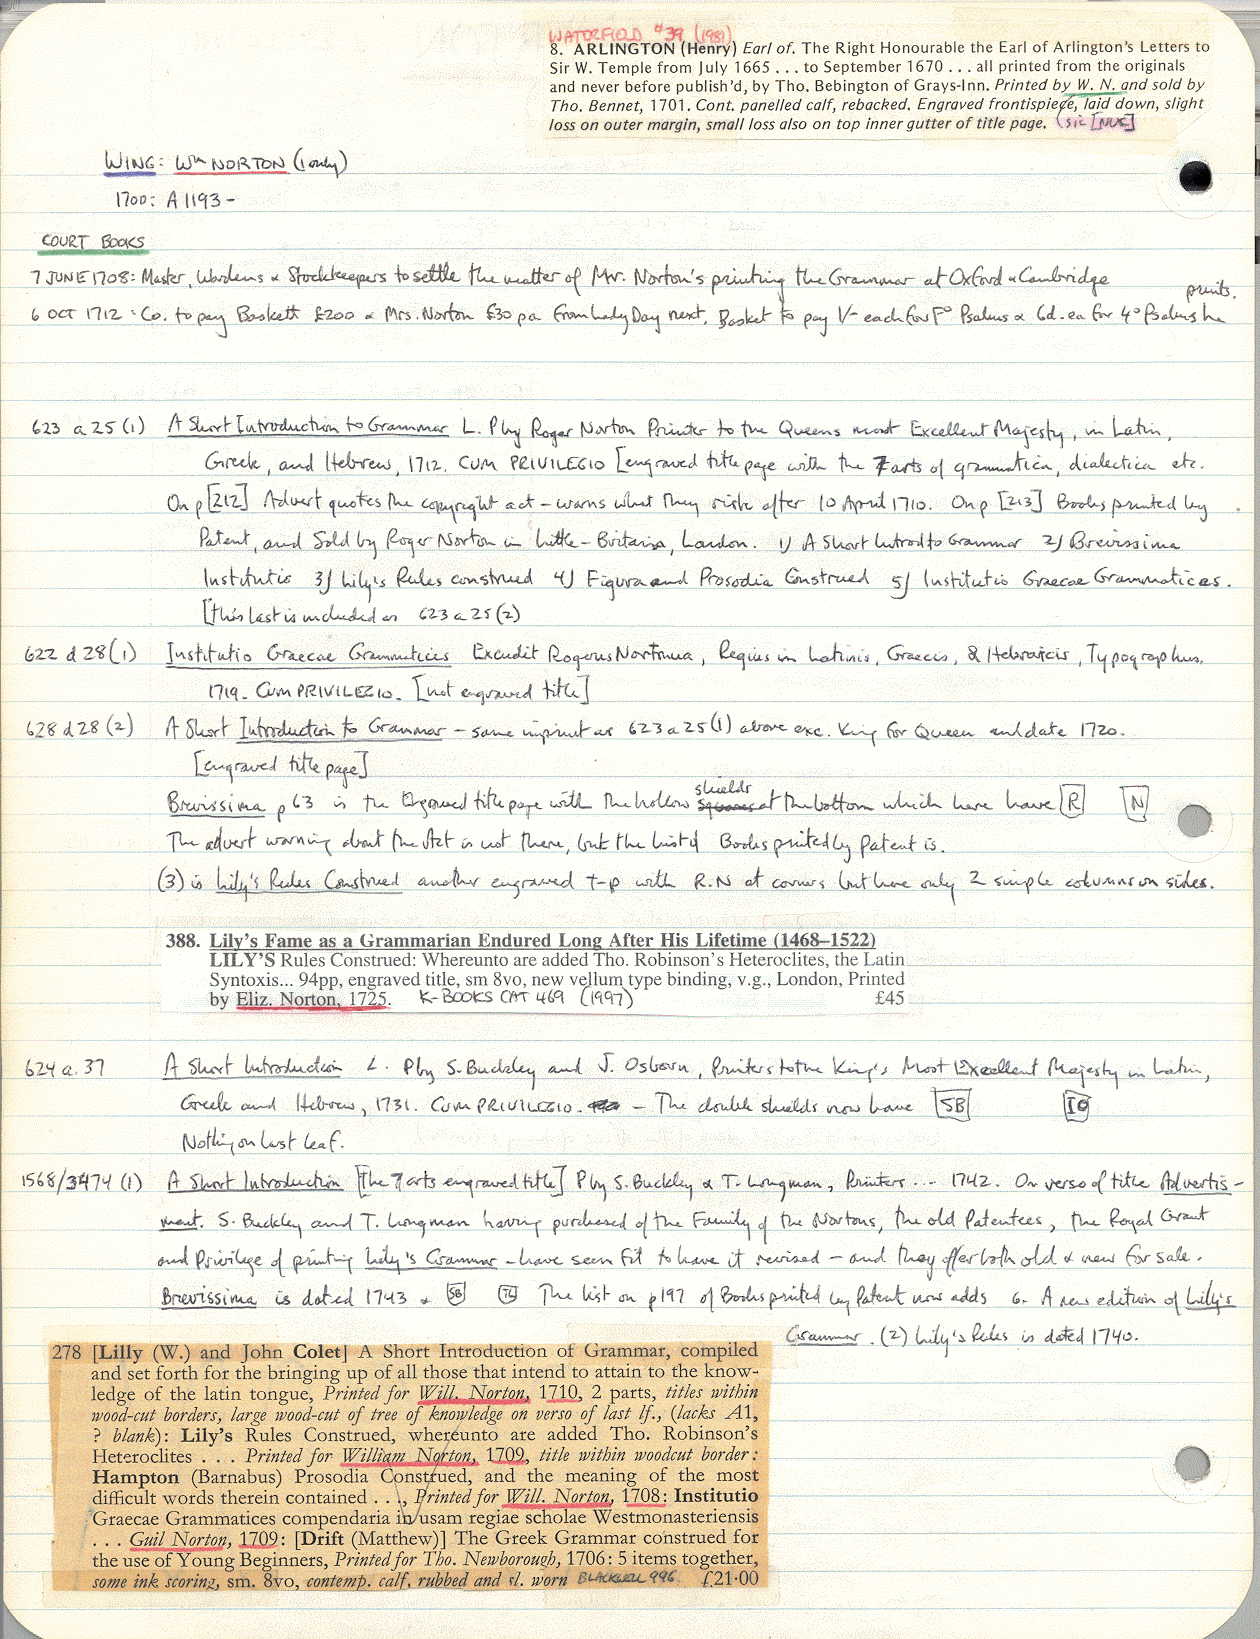 WATERFIELD #39 (1981)
8. ARLINGTON (Henry) Earl of. The Right Honourable the Earl of Arlington's Letters to
Sir W. Temple from July 1665 . . . to September 1670 . . . all printed from the originals
and never before publish'd, by Tho. Bebington of Grays-Inn. Printed by W. N. and sold by
Tho. Bennet, 1701. Cont. panelled calf, rebacked. Engraved frontispiece, laid down, slight
loss on outer margin, small loss also on top inner gutter of title page. (sic [NUC]
WING: Wm NORTON (1 only)
1700: A1193 -
COURT BOOKS
7 JUNE 1708: Master, Wardens & Stockkeepers to settle the matter of Mr. Norton's printing the Grammar at Oxford & Cambridge
prints.
6 OCT 1712: Co. to pay Baskett £200 & Mrs. Norton £30 pa from Lady Day next. Basket to pay 1/- each for F° Psalms & 6d. ea for 4° Psalms he
623 a 25 (1) A Short Introduction to Grammar L. P by Roger Norton Printer to the Queens most Excellent Majesty, in Latin,
Greek, and Hebrew, 1712. CUM PRIVILEGIO [engraved title page with the 7 arts of grammatica, dialectica etc.
On p [212] Advert quotes the copyright act – warns what they risk after 10 April 1710. On p [213] Books printed by
Patent, and Sold by Roger Norton in Little-Britain, London. 1) A Short Introd to Grammar 2) Brevissima
Institutio 3) Lily's Rules construed 4) Figura and Prosodia Construed 5) Institutio Graecae Grammatices.
[this last is included as 623 a 25 (2)
622 d 28 (1) Institutio Graecae Grammatices Excudit Rogerus Nortonus, Regius in Latinis, Graecis, & Hebraicis, Typographus.
1719. CUM PRIVILEGIO. [not engraved title]
628 d 28 (2) A Short Introduction to Grammar – same imprint as 623 a 25 (1) above exc. King for Queen and date 1720.
[engraved title page]
shields
Brevissima p 63 is the Engraved title page with the hollow squares at the bottom which here have R N
The advert warning about the Act is not there, but the list of Books printed by Patent is.
(3) is Lily's Rules Construed another engraved t-p with R.N at corners but here only 2 simple columns on sides.
388. Lily's Fame as a Grammarian Endured Long After His Lifetime (1468–1522)
LILY'S Rules Construed: Whereunto are added Tho. Robinson's Heteroclites, the Latin
Syntoxis... 94pp, engraved title, sm 8vo, new vellum type binding, v.g., London, Printed
by Eliz. Norton, 1725. K-BOOKS CAT 469 (1997) £45
624 a. 37 A Short Introduction L. P by S. Buckley and J. Osborn, Printers to the King's Most Excellent Majesty in Latin,
Greek and Hebrew, 1731. CUM PRIVILEGIO. – The double shields now have SB IO
Nothing on last leaf.
1568/3474 (1) A Short Introduction [The 7 arts engraved title] P by S. Buckley & T. Longman, Printers ... 1742. On verso of title Advertis-
ment. S. Buckley and T. Longman having purchased of the Family of the Nortons, the old Patentees, the Royal Grant
and Privilege of printing Lily's Grammar – have seen fit to have it revised – and they offer both old & new for sale.
Brevissima is dated 1743 & SB TL The list on p197 of Books printed by Patent now adds 6. A new edition of Lily's
Grammar. (2) Lily's Rules is dated 1740.
278 [Lilly (W.) and John Colet] A Short Introduction of Grammar, compiled
and set forth for the bringing up of all those that intend to attain to the know-
ledge of the latin tongue, Printed for Will. Norton, 1710, 2 parts, titles within
wood-cut borders, large wood-cut of tree of knowledge on verso of last lf., (lacks A1,
? blank): Lily's Rules Construed, whereunto are added Tho. Robinson's
Heteroclites . . . Printed for William Norton, 1709, title within woodcut border:
Hampton (Barnabus) Prosodia Construed, and the meaning of the most
difficult words therein contained . . ., Printed for Will. Norton, 1708: Institutio
Graecae Grammatices compendaria in usam regiae scholae Westmonasteriensis
. . . Guil Norton, 1709: [Drift (Matthew)] The Greek Grammar construed for
the use of Young Beginners, Printed for Tho. Newborough, 1706: 5 items together,
some ink scoring, sm. 8vo, contemp. calf, rubbed and sl. worn BLACKWELL 996. £21·00